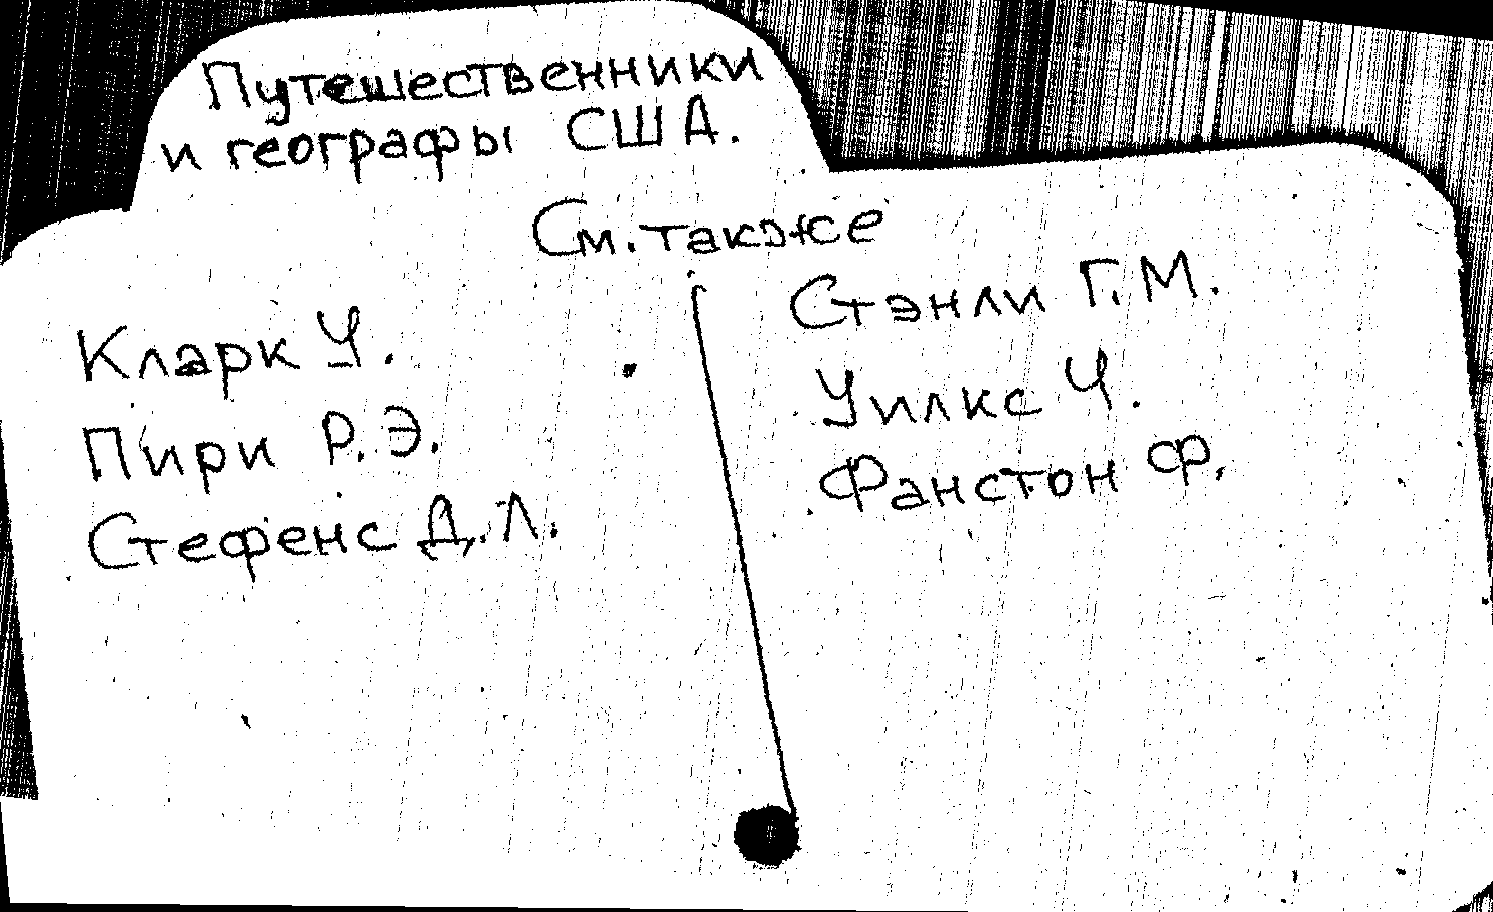 Путешественники
и географы США.
См. также
Кларк У.
Пири Р.Э.
Стефенс Д.Л.
Стэнли Г.М.
Уилкс Ч.
Фанстон Ф.